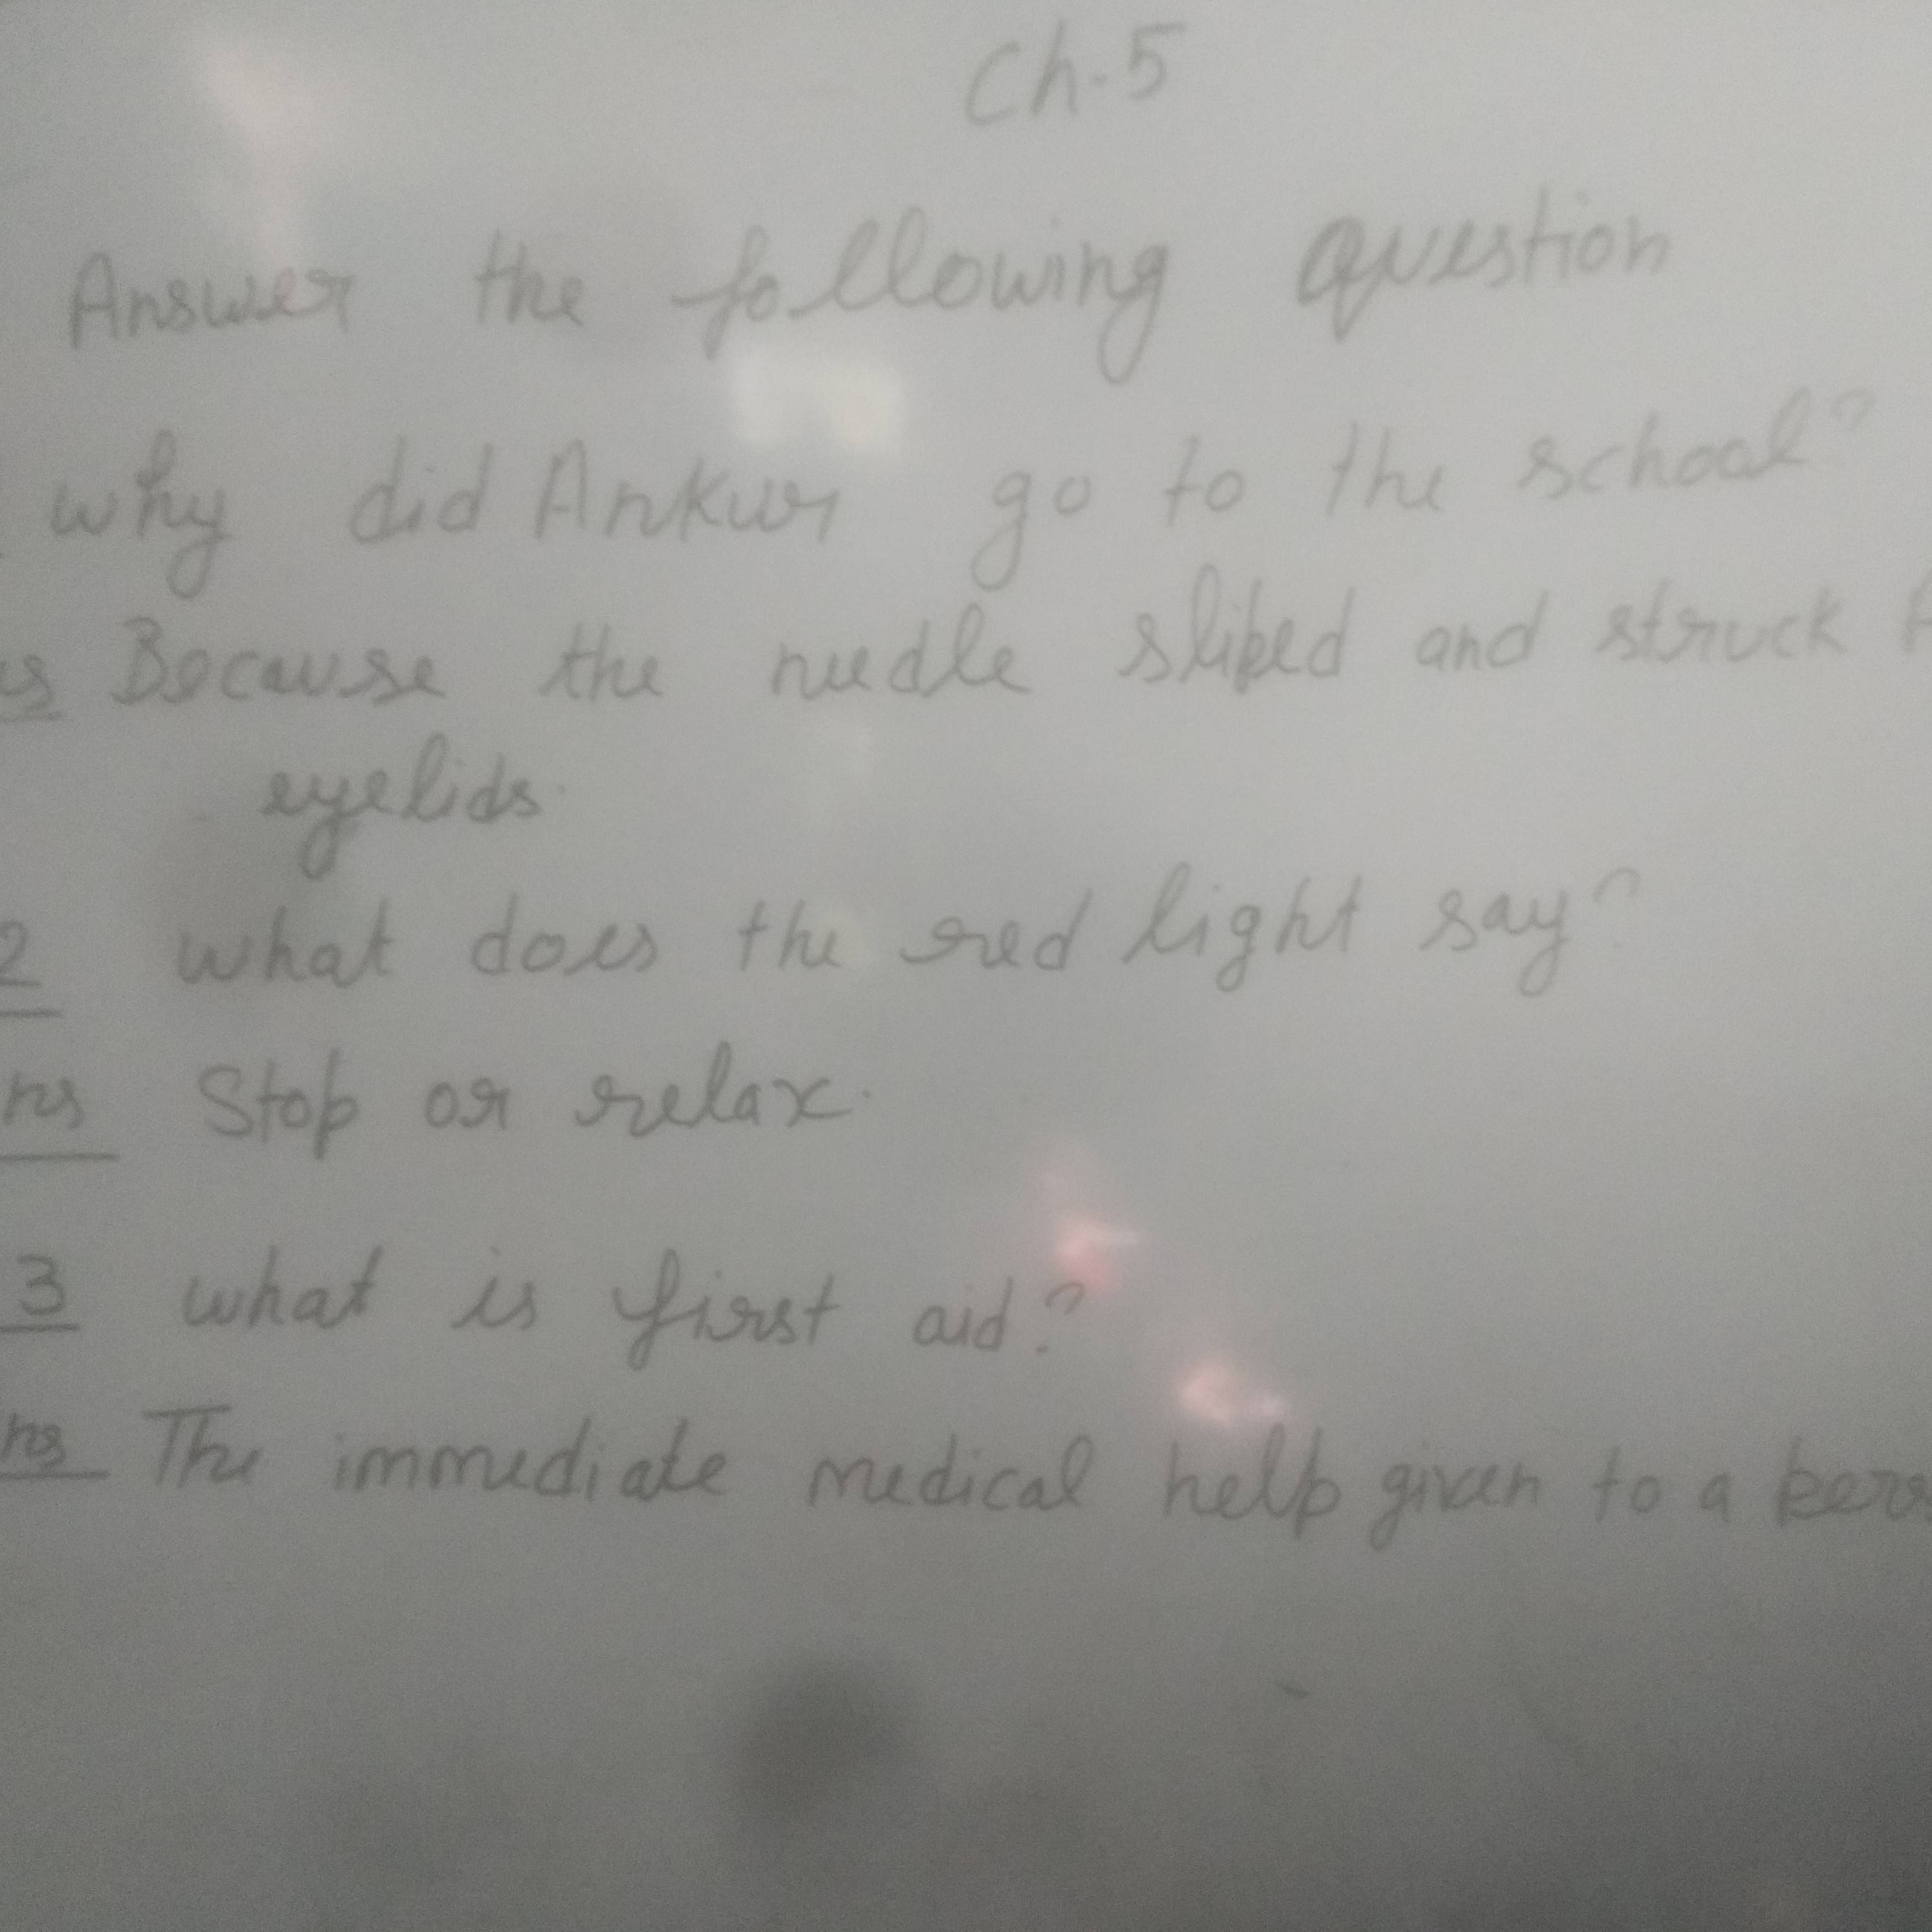 Ch.5
Answer the following question
why did Ankur go to the school?
Because the needle sliped and struck
eyelids.
2 what does the red light say?
ns Stop or relax.
3 what is first aid?
ns The immediate medical help given to a